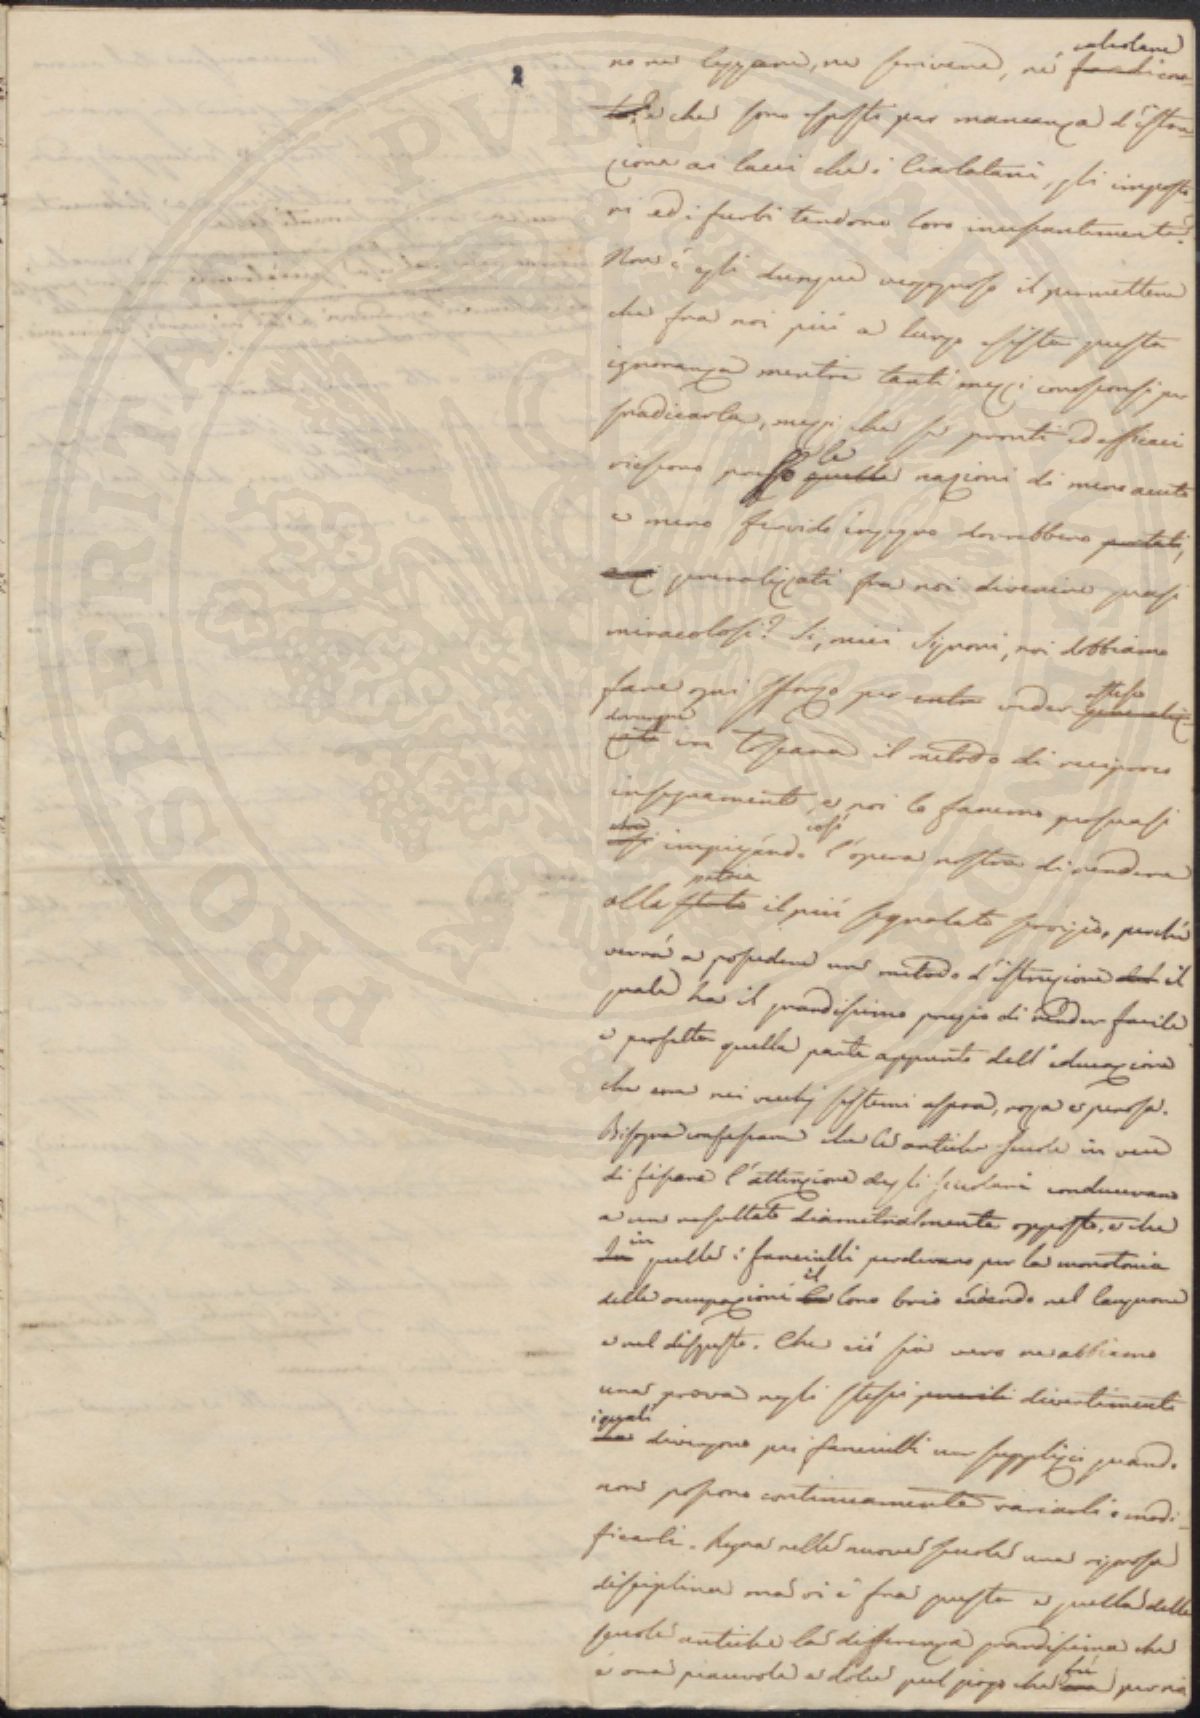 2
calcolare
no ne leggere, ne scrivere, ne
e che sono esposti per mancanza d'istru-
zione ai lacci che i Ciarlatani, gli imposto-
ri ed i furbi tendono loro incessantemente.
Non è egli dunque vergognoso il permettere
che fra noi più a lungo esista questa
ignoranza mentre tanti mezzi conosconsi per
sradicarla, mezzi che sì pronti ed efficaci
riescono presso quelle le nazioni di meno acuto
e meno fervido ingegno dovrebbero portati,
anzi generalizzati fra noi divenire quasi
miracolosi? Si, miei Signori, noi dobbiamo
fare ogni sforzo per veder generaliz- esteso
zato dovunque in Toscana il metodo di reciproco
insegnamento, e noi lo faremo persuasi
così impiegando così l'opera nostra di rendere
alla stato patria il più segnalato servizio, perché
verrà a possedere un metodo d'istruzione il
quale ha il grandissimo pregio di render facile
e perfetta quella parte appunto dell'educazione
che era nei vecchj sistemi aspra, roza e penosa.
Bisogna confessare che le antiche scuole in vece
di fissare l'attenzione degli scolari conducevano
a un resultato diametralmente opposto, e che
In in quelle i fanciulli perdevano per la monotonia
delle occupazioni la il loro brio cadendo nel languore
e nel disgusto. Che ciò sia vero ne abbiamo
una prova negli stessi puerili divertimenti
i quali divengono pei fanciulli un supplizio quando
non possono continuamente variarli e modi-
ficarli. Regna nelle nuove scuole una rigorosa
disciplina ma vi è fra questa e quella delle
scuole antiche la differenza grandissima che
è ora piacevole e dolce quel giogo che era fù per noi
PROSPERITATI PVBLICAE AVGENDAE